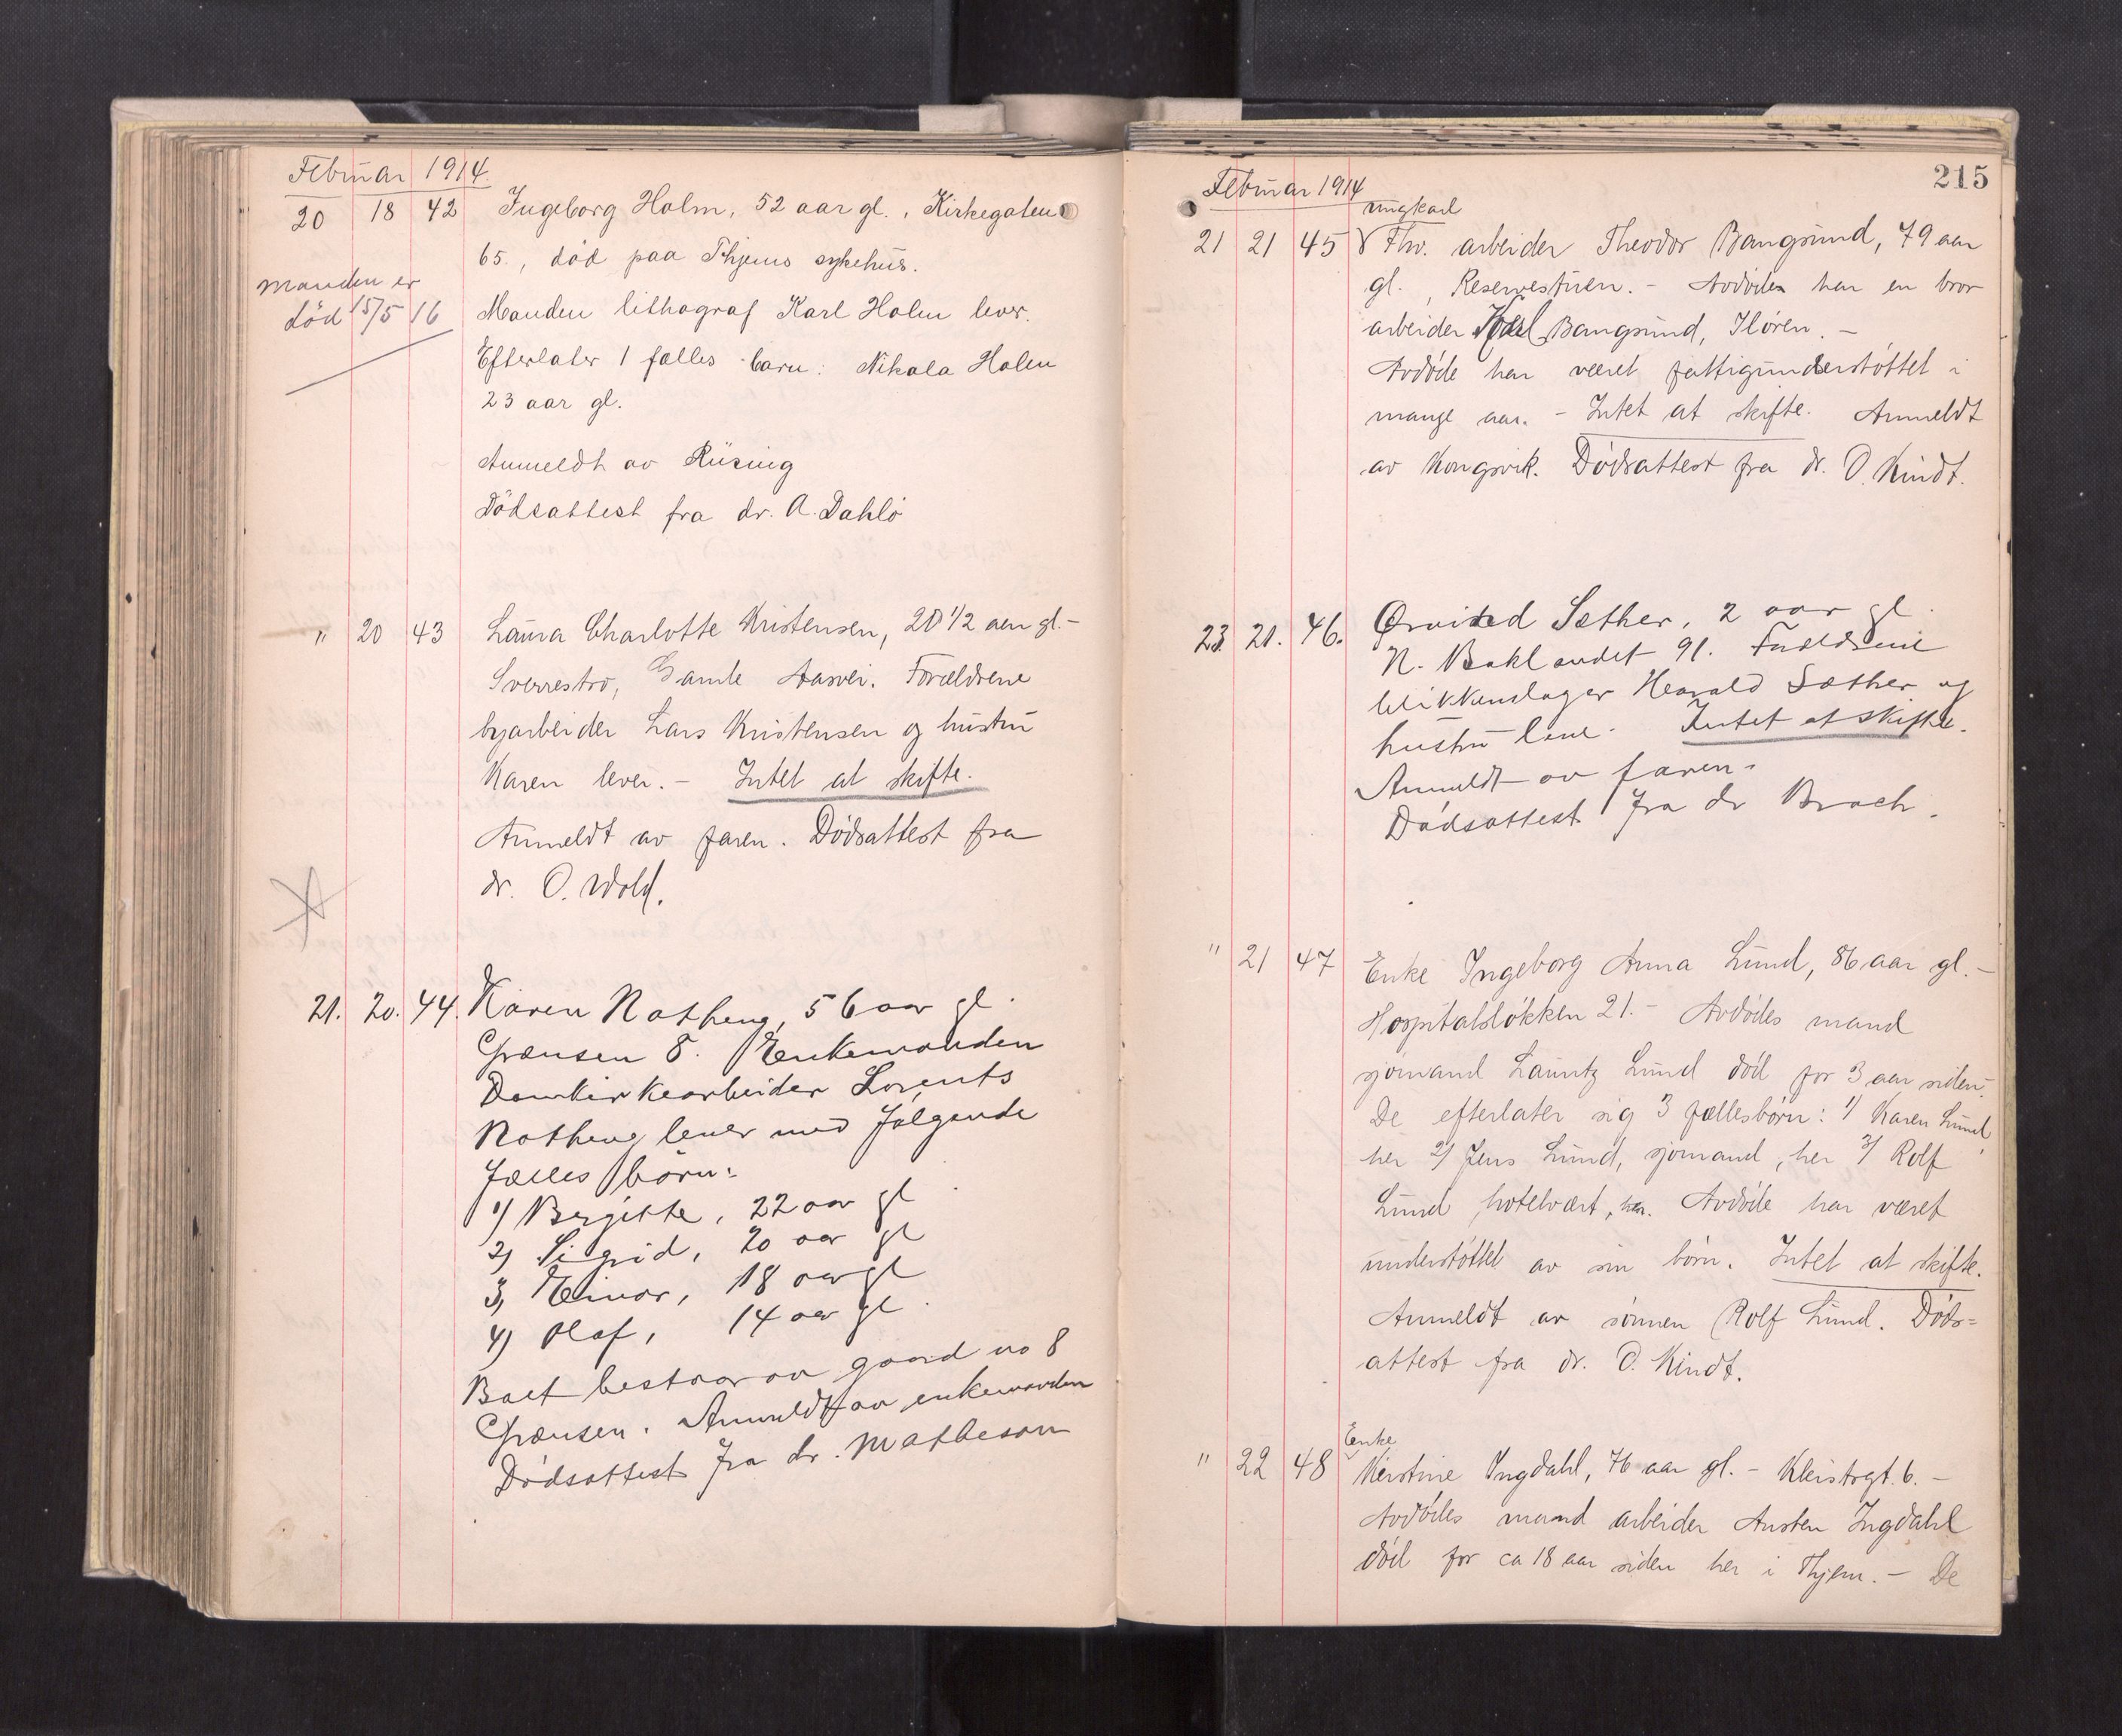 Februar 1914.
20 18 42 Ingeborg Holm, 52 aar gl., Kirkegaten
65., död paa Thjems sykehus.
Manden er
död 15/5 16
Manden lithograf Karl Holm lever.
Efterlater 1 fælles barn: Nikola Holm
23 aar gl.
Anmeldt av Rüsing
Dödsattest fra dr. A. Dahlö
" 20 43 Laura Charlotte Kristensen, 20 1/2 aar gl.-
Sverresbo, Gamle Aasvei. Forældrene
byarbeider Lars Kristensen og hustru
Karen lever. - Intet at skifte.
Anmeldt av faren. Dödsattest fra
dr. O. Wold.
21. 20. 44. Karen Notheng, 56 aar gl.
Grænsen 8. Enkemanden
Domkirkearbeider Lorents
Notheng lever med følgende
fælles börn:
1) Bergitte, 22 aar gl.
2) Sigrid, 20 aar gl
3, Einar, 18 aar gl
4) Olaf, 14 aar gl.
Boet bestaar av gaard no 8
Grænsen. Anmeldt av enkemanden
Dödsattest fra dr. Matheson
215
Februar 1914
ungkarl
21 21 45 Fhv. arbeider Theodor Bangsund, 79 aar
gl., Reservestuen. - Avdödes har en bror
arbeider Karl Bangsund, Ilören. -
Avdöde har været fattigunderstöttet i
mange aar. - Intet at skifte. Anmeldt
av Kongsvik. Dödsattest fra dr. O. Kindt.
23. 21. 46. Sæther, 2 aar gl.
N. Baklandet 91. Forældrene
blikkenslager Harald Sæther og
hustru leve. Intet at skifte.
Anmeldt av faren.
Dödsattest fra dr Broch.
" 21 47 Enke Ingeborg Anna Lund, 86 aar gl.-
Hospitalslökken 21.- Avdödes mand
sjömand Lauritz Lund död for 3 aar siden.-
De efterlater sig 3 fællesbörn: 1/ Karen Lund,
her 2/ Jens Lund, sjömand, her 3/ Rolf
Lund, hotelvært, her. Avdöde har været
understöttet av sin börn. Intet at skifte.
Anmeldt av sönnen Rolf Lund. Döds=
attest fra dr. O. Kindt.
Enke
" 22 48 Kirstine Ingdahl, 76 aar gl. - Kleistrgt. 6. -
Avdödes mand arbeider Austen Ingdahl
död for ca 18 aar siden her i Thjem. - De